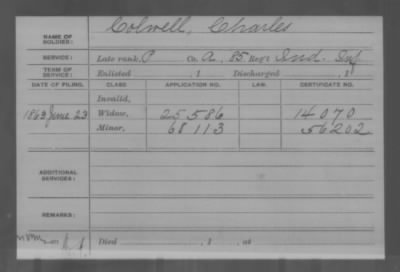 Colwell, Charles
NAME OF SOLDIER:
SERVICE: Late rank, P Co. A, 85 Reg't Ind. Inf.
TERM OF SERVICE: Enlisted , 1 Discharged , 1
DATE OF FILING. CLASS. APPLICATION NO. LAW. CERTIFICATE NO.
Invalid,
1863 June 23 Widow, 25586 14070
Minor, 68113 56202
ADDITIONAL SERVICES:
REMARKS:
Died , 1 , at